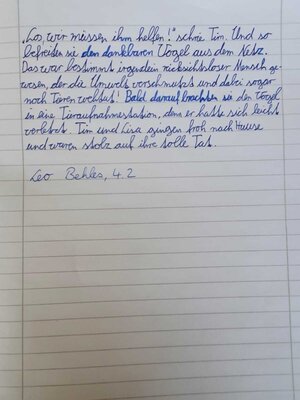 „Los, wir müssen ihm helfen!" schrie Tim. Und so
befreiten sie den dankbaren Vogel aus dem Netz.
Das war bestimmt irgendein rücksichtsloser Mensch ge-
wesen, der die Umwelt verschmutzt und dabei sogar
noch Tieren wehtut! Bald darauf brachten sie den Vogel
in eine Tieraufnahmestation, denn er hatte sich leicht
verletzt. Tim und Lisa gingen froh nach Hause
und waren stolz auf ihre tolle Tat.
Leo Behles, 4.2